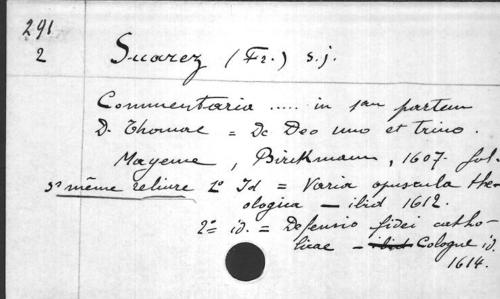 291
2
Suarez (Fr.) s.j.
Commentaria ..... in 1am partem
D. Thomae = De Deo uno et trino.
Mayence, Birckmann, 1607. fol.
Ds même reliure 1° Id = Varia opuscula the-
ologica — ibid 1612.
2° id. = Defensio fidei catho-
licae — ibid Cologne id.
1614.